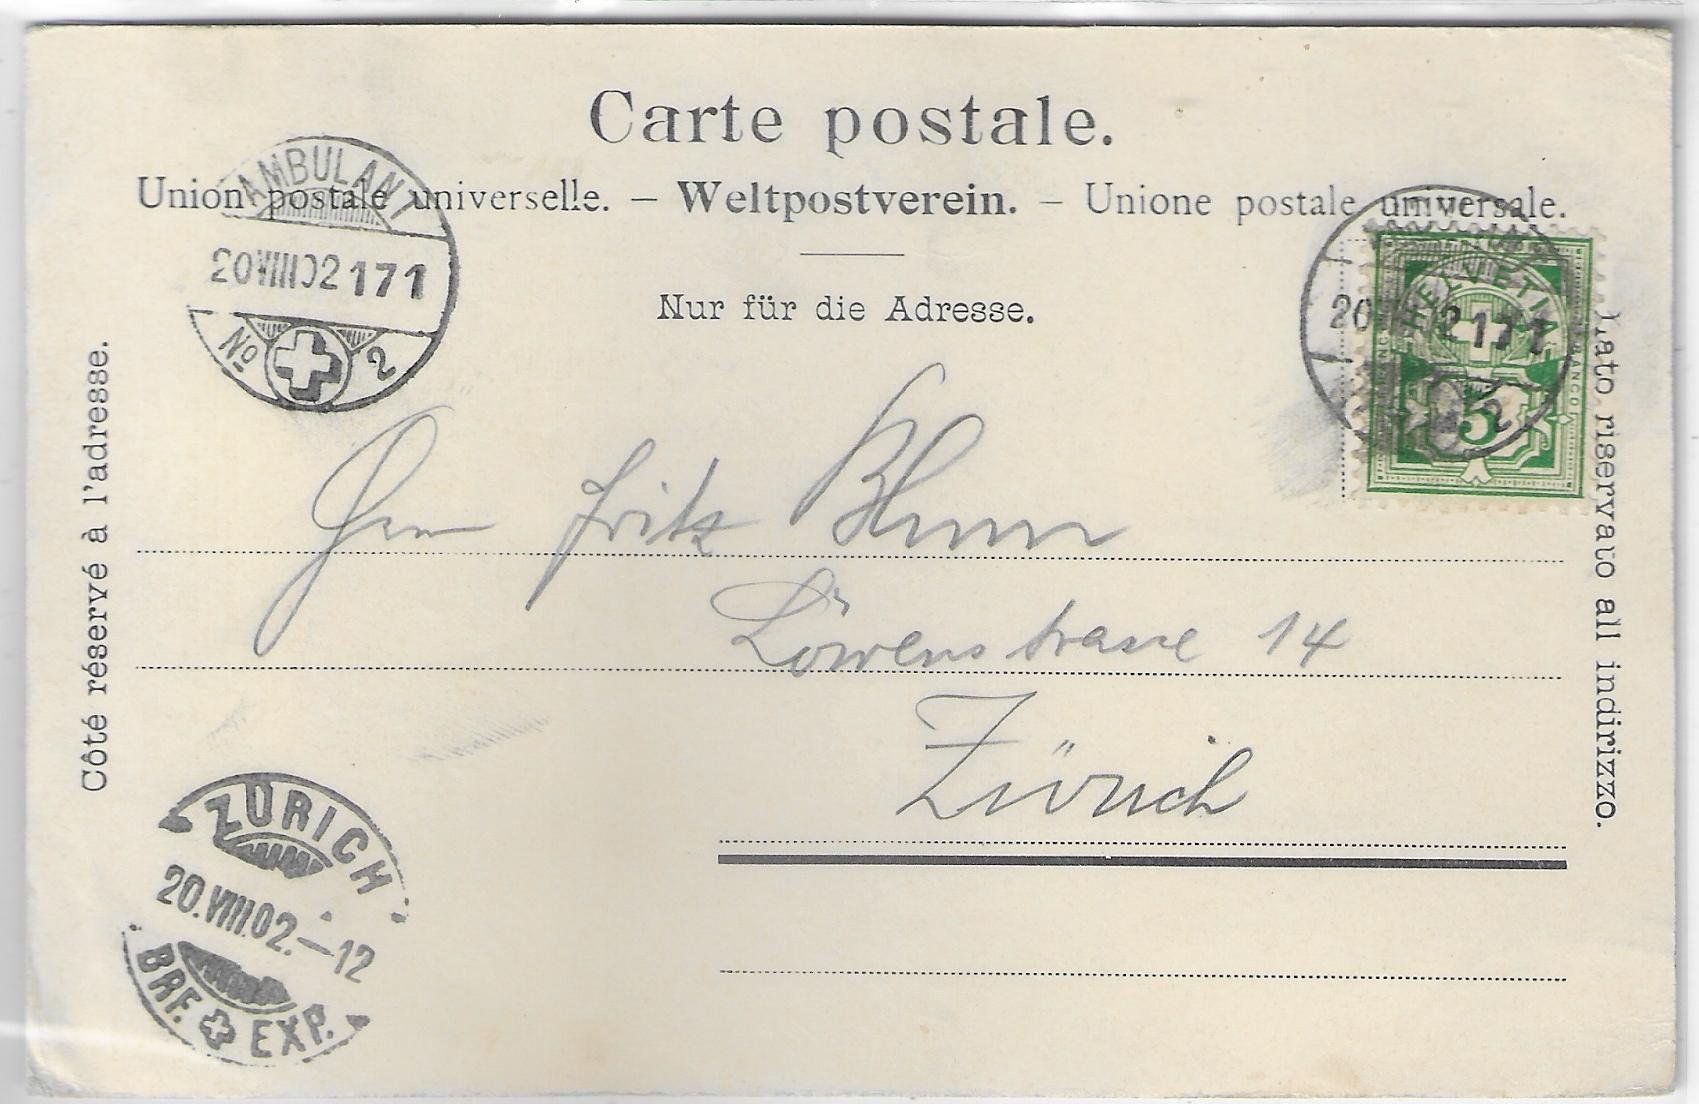 Carte postale.
Union postale universelle. – Weltpostverein. – Unione postale universale.
Nur für die Adresse.
AMBULANT
20 VIII 02 171
No 2
HELVETIA
FRANCO
5
20 2 171
2
Côté réservé à l'adresse.
Lato riservato all indirizzo.
Herrn Fritz Blum
Löwenstrasse 14
Zürich
ZÜRICH
20.VIII.02.–12
BRF. EXP.